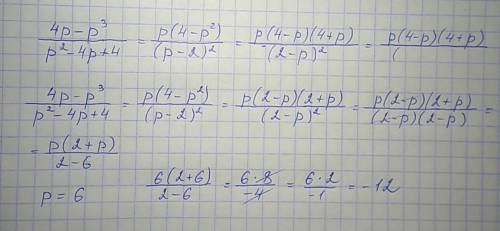 (4p-p³)/(p²-4p+4) = p(4-p²)/(p-2)² = p(4-p)(4+p)/(2-p)² = p(4-p)(4+p)/(
(4p-p³)/(p²-4p+4) = p(4-p²)/(p-2)² = p(2-p)(2+p)/(2-p)² = p(2-p)(2+p)/(2-p)(2-p) =
= p(2+p)/(2-6)
p = 6 6(2+6)/(2-6) = 6·8/-4 = 6·2/-1 = -12